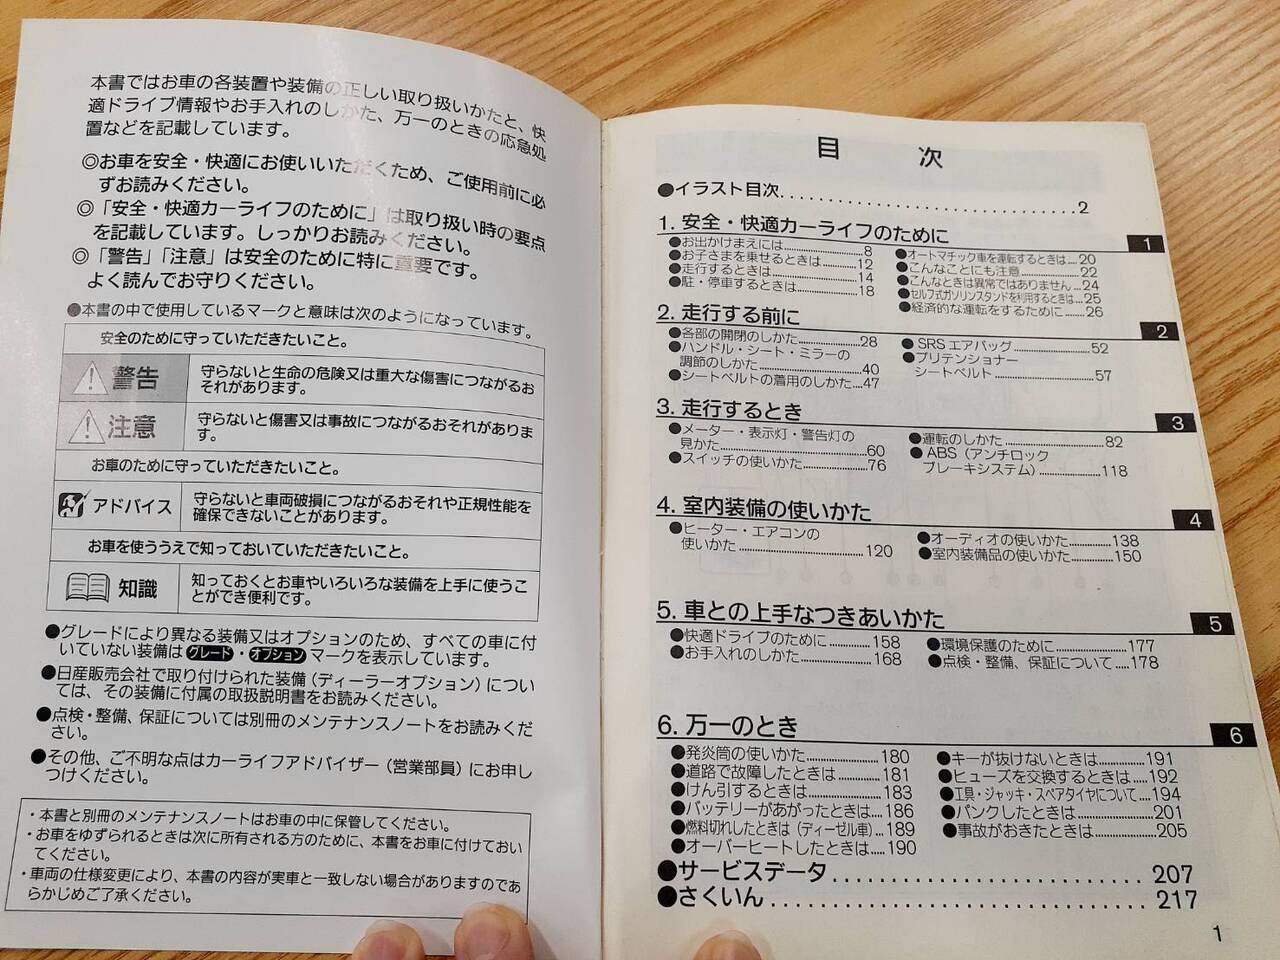 本書ではお車の各装置や装備の正しい取り扱いかたと、快
適ドライブ情報やお手入れのしかた、万一のときの応急処
置などを記載しています。
◎お車を安全・快適にお使いいただくため、ご使用前に必
ずお読みください。
◎「安全・快適カーライフのために」は取り扱い時の要点
を記載しています。しっかりお読みください。
◎「警告」「注意」は安全のために特に重要です。
よく読んでお守りください。
●本書の中で使用しているマークと意味は次のようになっています。
安全のために守っていただきたいこと。
警告
守らないと生命の危険又は重大な傷害につながるお
それがあります。
注意
守らないと傷害又は事故につながるおそれがありま
す。
お車のために守っていただきたいこと。
アドバイス
守らないと車両破損につながるおそれや正規性能を
確保できないことがあります。
お車を使ううえで知っておいていただきたいこと。
知識
知っておくとお車やいろいろな装備を上手に使うこ
とができ便利です。
●グレードにより異なる装備又はオプションのため、すべての車に付
いていない装備は グレード・オプション マークを表示しています。
●日産販売会社で取り付けられた装備（ディーラーオプション）につい
ては、その装備に付属の取扱説明書をお読みください。
●点検・整備、保証については別冊のメンテナンスノートをお読みくだ
さい。
●その他、ご不明な点はカーライフアドバイザー（営業部員）にお申し
つけください。
・本書と別冊のメンテナンスノートはお車の中に保管してください。
・お車をゆずられるときは次に所有される方のために、本書をお車に付けておい
てください。
・車両の仕様変更により、本書の内容が実車と一致しない場合がありますのであ
らかじめご了承ください。
目次
●イラスト目次..............................2
1. 安全・快適カーライフのために 1
●お出かけまえには..............8
●お子さまを乗せるときは........12
●走行するときは................14
●駐・停車するときは............18
●オートマチック車を運転するときは....20
●こんなことにも注意............22
●こんなときは異常ではありません...24
●セルフ式ガソリンスタンドを利用するときは...25
●経済的な運転をするために......26
2. 走行する前に 2
●各部の開閉のしかた............28
●ハンドル・シート・ミラーの
調節のしかた..................40
●シートベルトの着用のしかた....47
●SRSエアバッグ................52
●プリテンショナー
シートベルト..................57
3. 走行するとき 3
●メーター・表示灯・警告灯の
見かた........................60
●スイッチの使いかた............76
●運転のしかた..................82
●ABS（アンチロック
ブレーキシステム）............118
4. 室内装備の使いかた 4
●ヒーター・エアコンの
使いかた......................120
●オーディオの使いかた..........138
●室内装備品の使いかた..........150
5. 車との上手なつきあいかた 5
●快適ドライブのために..........158
●お手入れのしかた..............168
●環境保護のために..............177
●点検・整備、保証について......178
6. 万一のとき 6
●発炎筒の使いかた..............180
●道路で故障したときは..........181
●けん引するときは..............183
●バッテリーがあがったときは....186
●燃料切れしたときは（ディーゼル車）...189
●オーバーヒートしたときは......190
●キーが抜けないときは..........191
●ヒューズを交換するときは......192
●工具・ジャッキ・スペアタイヤについて....194
●パンクしたときは..............201
●事故がおきたときは............205
●サービスデータ............................207
●さくいん..................................217
1